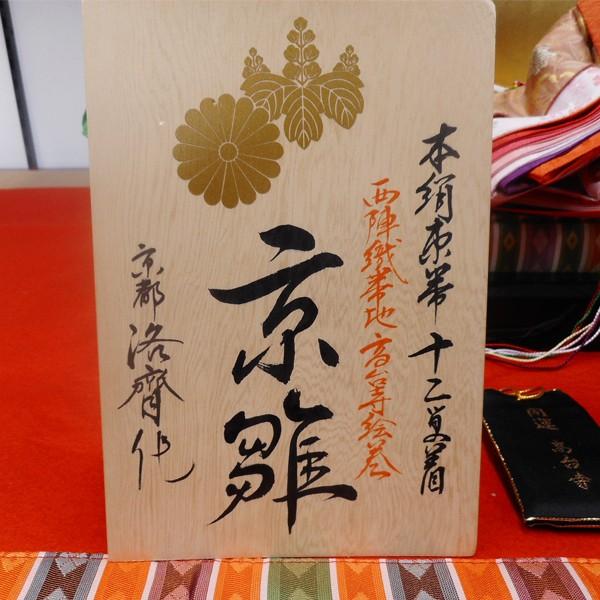 本絹束帯十二単着
西陣織帯地高台寺絵巻
京雛
京都洛齊作
開運 高台寺